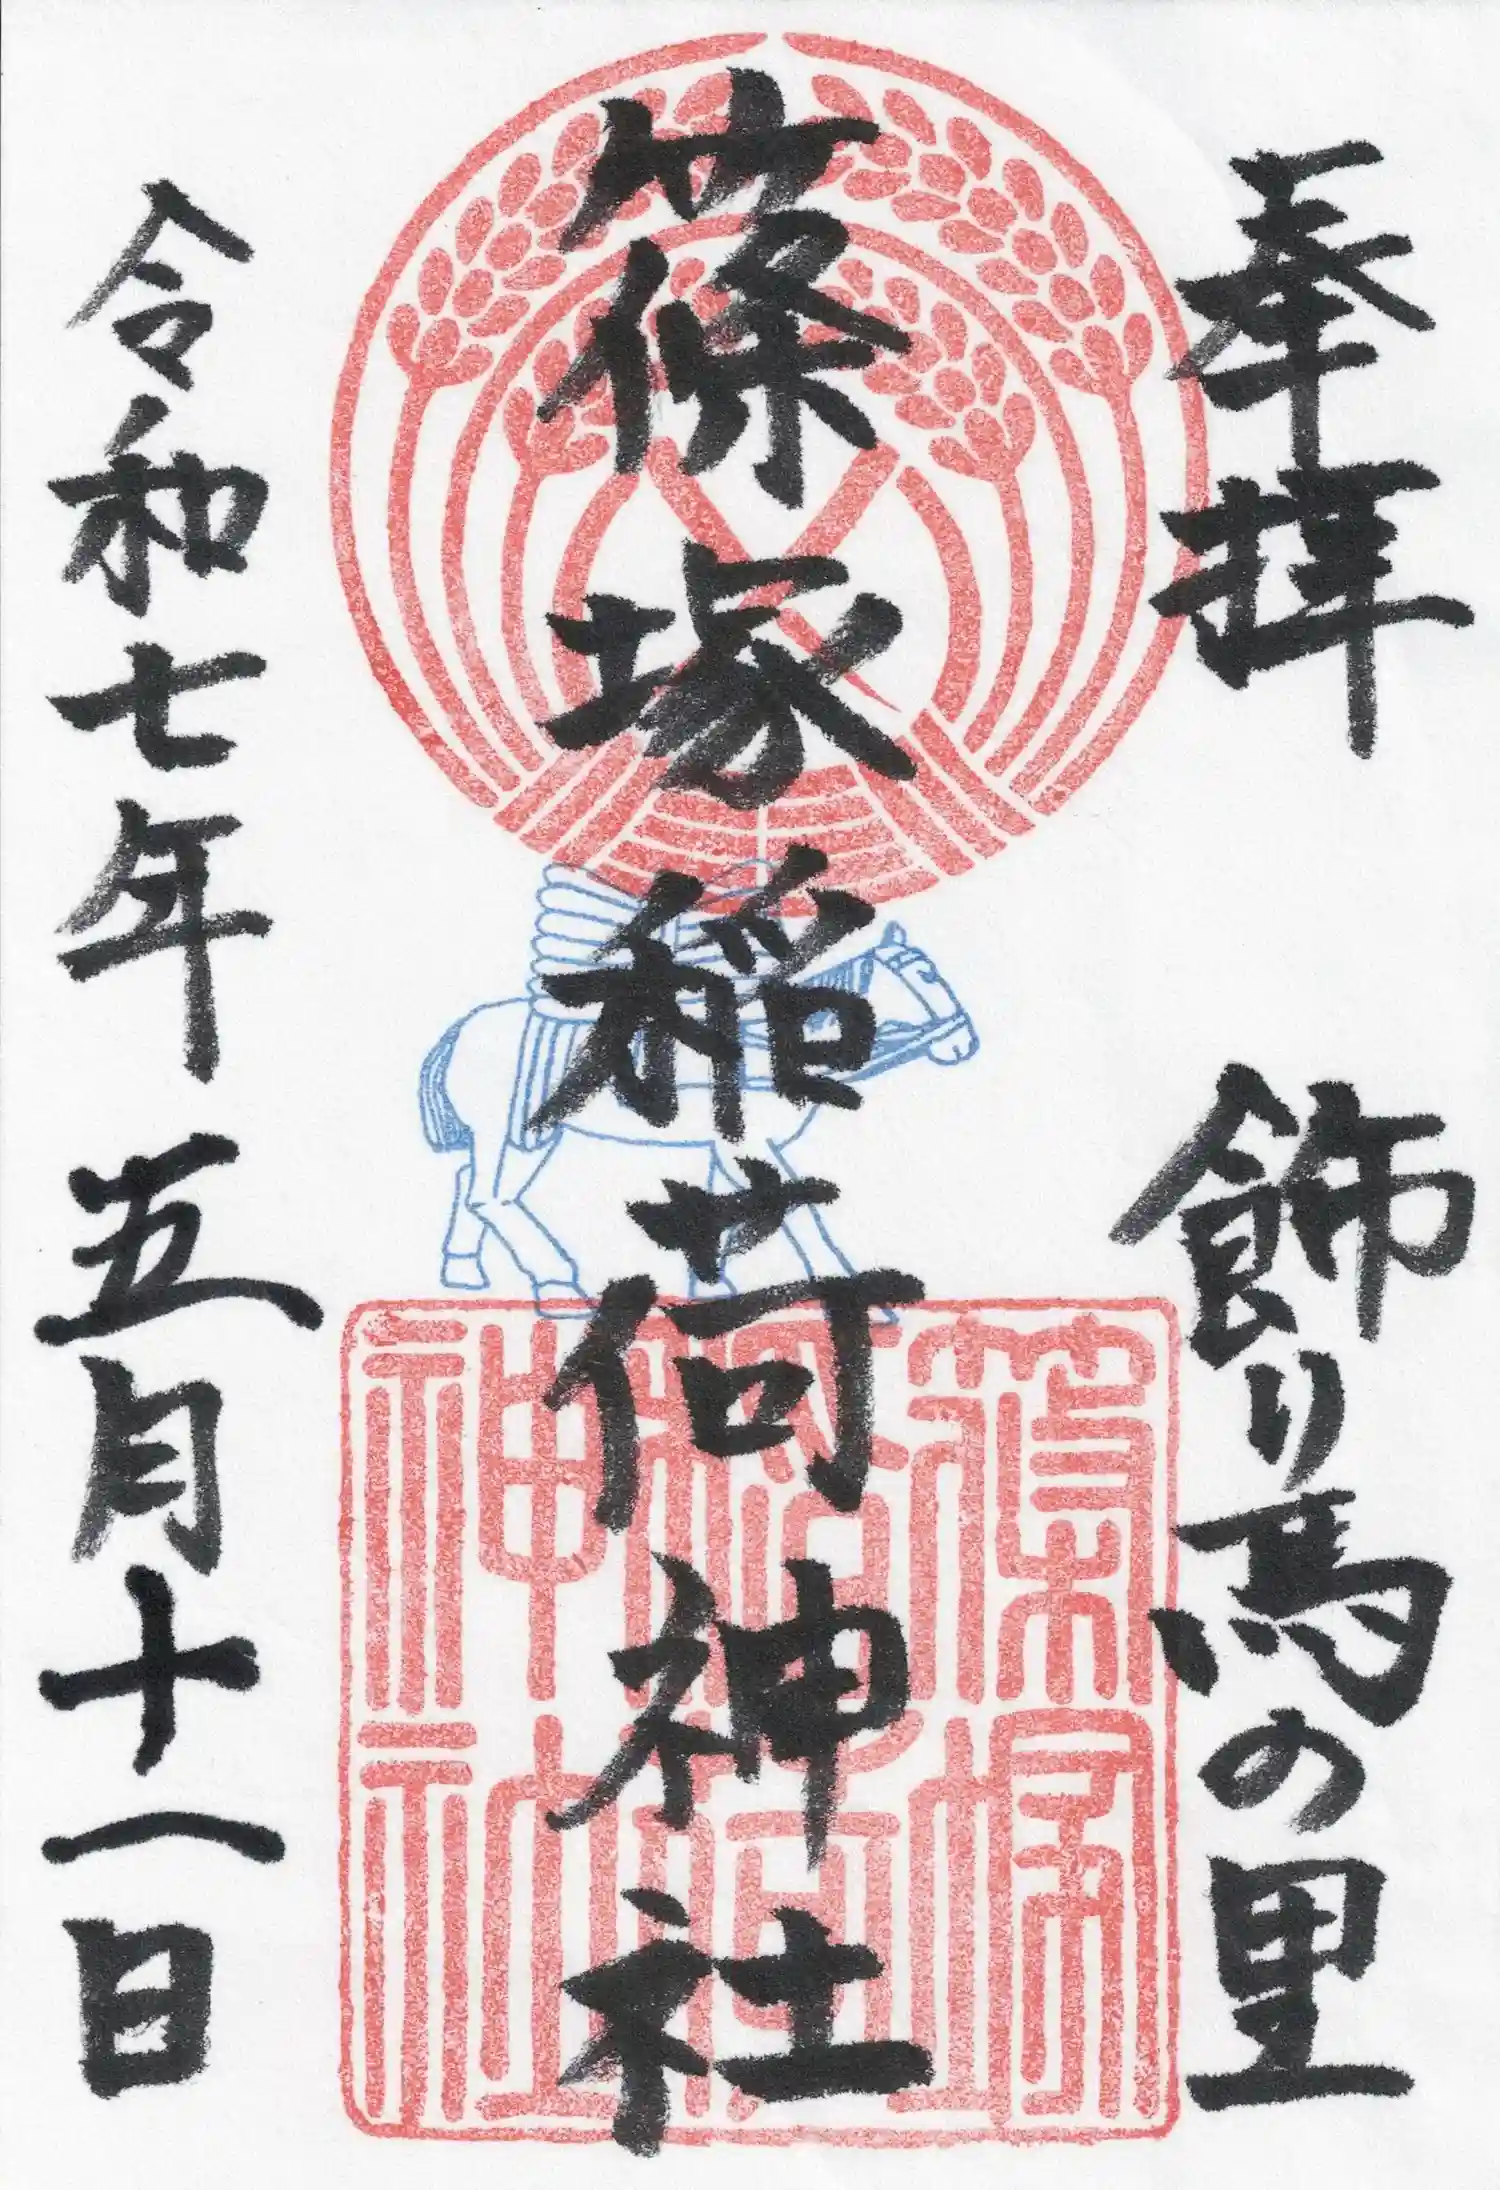 奉拝 飾り馬の里
篠塚稲荷神社
篠塚
稲荷
神社
令和七年五月十一日